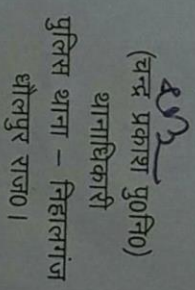 (चन्द्र प्रकाश पु0नि0)
थानाधिकारी
पुलिस थाना – निहालगंज
धौलपुर राज0।